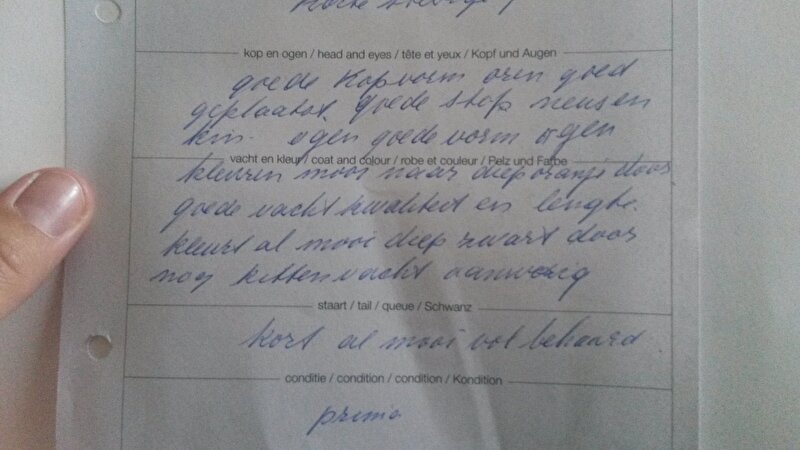 korte stevige
kop en ogen / head and eyes / tête et yeux / Kopf und Augen
goede kopvorm oren goed
geplaatst. goede stop neus en
kin. ogen goede vorm ogen
vacht en kleur / coat and colour / robe et couleur / Pelz und Farbe
kleuren mooi naar diep oranje door
goede vacht kwaliteit en lengte.
kleurt al mooi diep zwart door
nog kittenvacht aanwezig
staart / tail / queue / Schwanz
kort al mooi vol behaard.
conditie / condition / condition / Kondition
prima